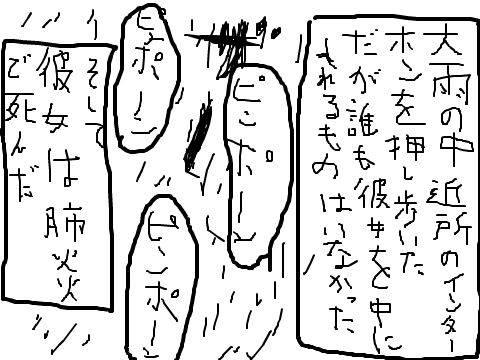 大雨の中近所のインター
ホンを押し歩いた
だが誰も彼女を中に
入れるものはいなかった
ピンポーン
ピンポーン
ピンポーン
そして
彼女は肺炎
で死んだ